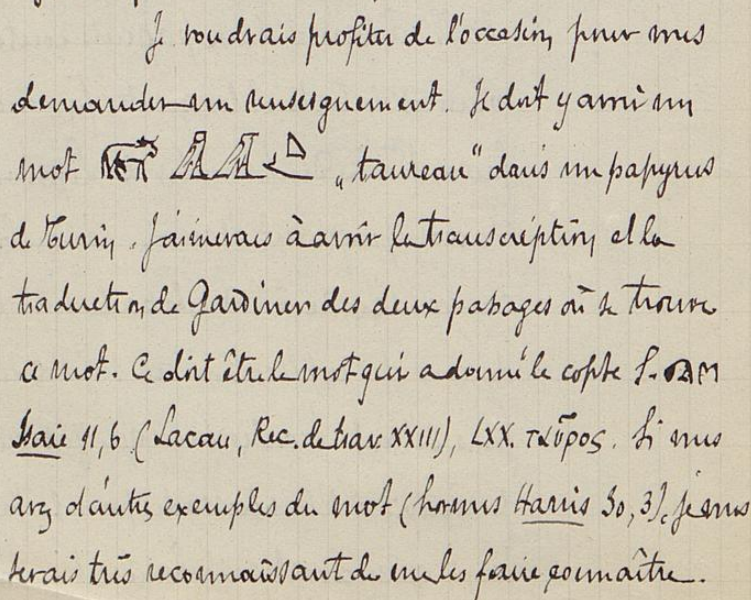 Je voudrais profiter de l'occasion pour vous
demander un renseignement. Il doit y avoir un
mot „taureau“ dans un papyrus
de Turin. J'aimerais à avoir la transcription et la
traduction de Gardiner des deux passages où se trouve
ce mot. Ce doit être le mot qui a donné le copte S. ϭⲁⲙ
Isaïe 11,6 (Lacau, Rec. de trav. XXIII), LXX. ταῦρος. Si vous
avez d'autres exemples du mot (hormis Harris 30,3), je vous
serais très reconnaissant de me les faire connaître.